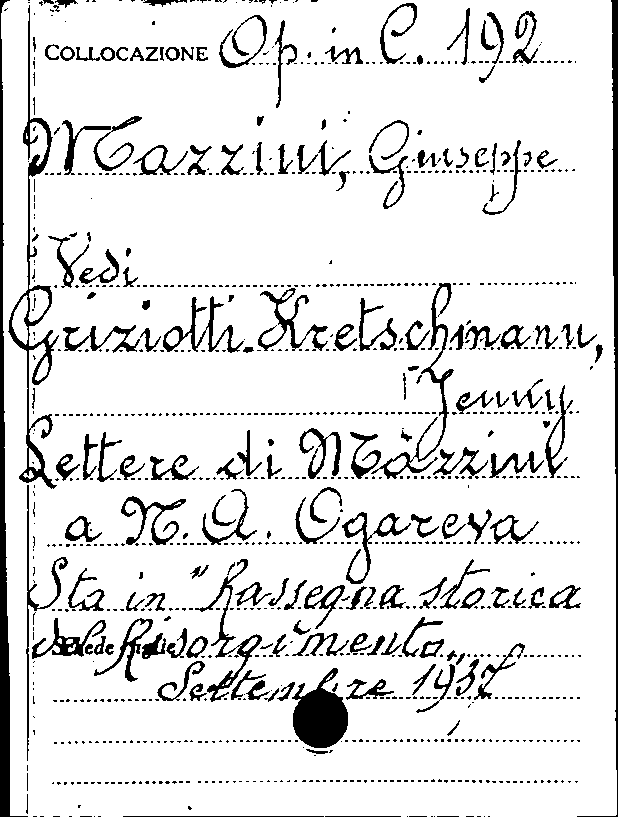 COLLOCAZIONE Op. in C. 192
Mazzini, Giuseppe
Vedi
Griziotti-Kretschmann,
Jenny
Lettere di Mazzini
a N. A. Ogareva
Sta in "Rassegna storica
del Risorgimento"
Settembre 1937